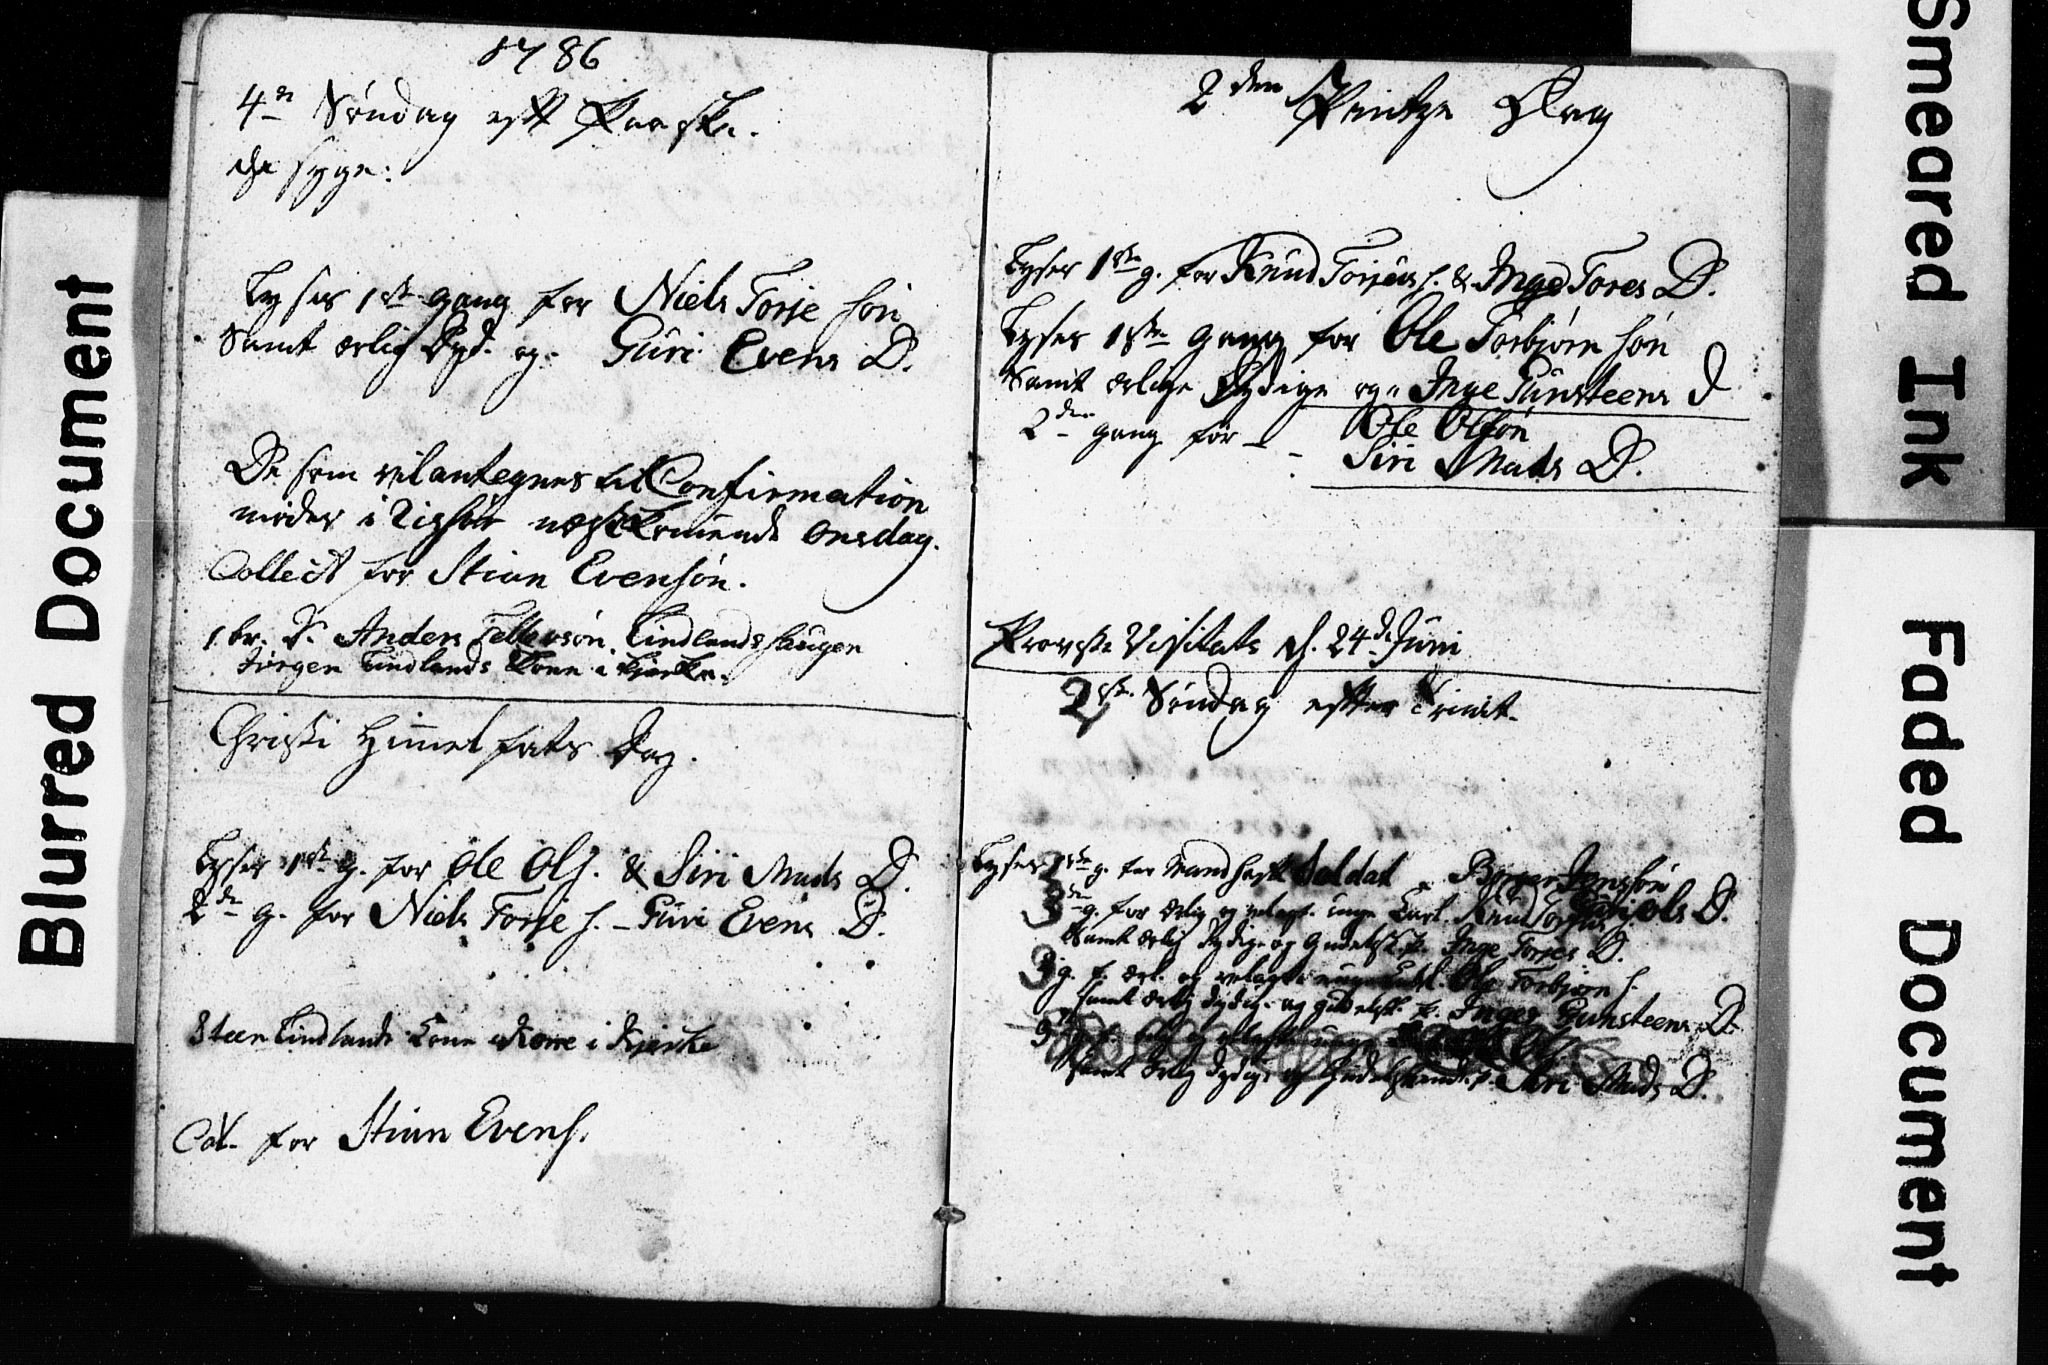 1786
4de Søndag eft Paaske.
de syge:
Lyses 1ste gang for Niels Torje søn
Samt ærlig Dyd. og. Guri Evens D.
De som vil antegnes til Confirmation
møder i Risør næstkomende onsdag.
Collect for Stian Evensøn.
1 br. D. Anders Tellevsøn Lindlandshaugen
Jørgen Lindlands Kone i Kirke.
Christi Himmelfarts Dag.
Lyses 1ste g. for Ole Ols. & Siri Mads D.
2den g. for Niels Torje s. - Guri Evens D.
Steen Lindlands Kone i Kirke
Col. for Stian Evens.
2den Pintze Dag
Lyses 1ste g. for Knud Torjus s. & Inge Tores D.
Lyses 1ste gang for Ole Torbjørn søn
Samt ærlige Dydige og Inge Gunsteens D
2den gang for - - Ole Olsøn
Siri Mads D.
Provste Visitats d. 24de Juni
2den Søndag efter Trinit.
Lyses 1ste g. for Mandhaft Soldat Børge Jenssøn
3die g. for ærlig og velagt. unge Karl. Knud Torjus
Samt ærlig dydige og Gudelsk. P. Inge Torjes D.
3 g. f. ærl. og velagt unge Karl. Ole Torbjørn s.
samt ærlig dydige og gudelsk. P. Inger Gunsteens D.
samt ærlig dydige og Gudelskende P. Siri Mads D.
Blurred Document
Smeared Ink
Faded Document